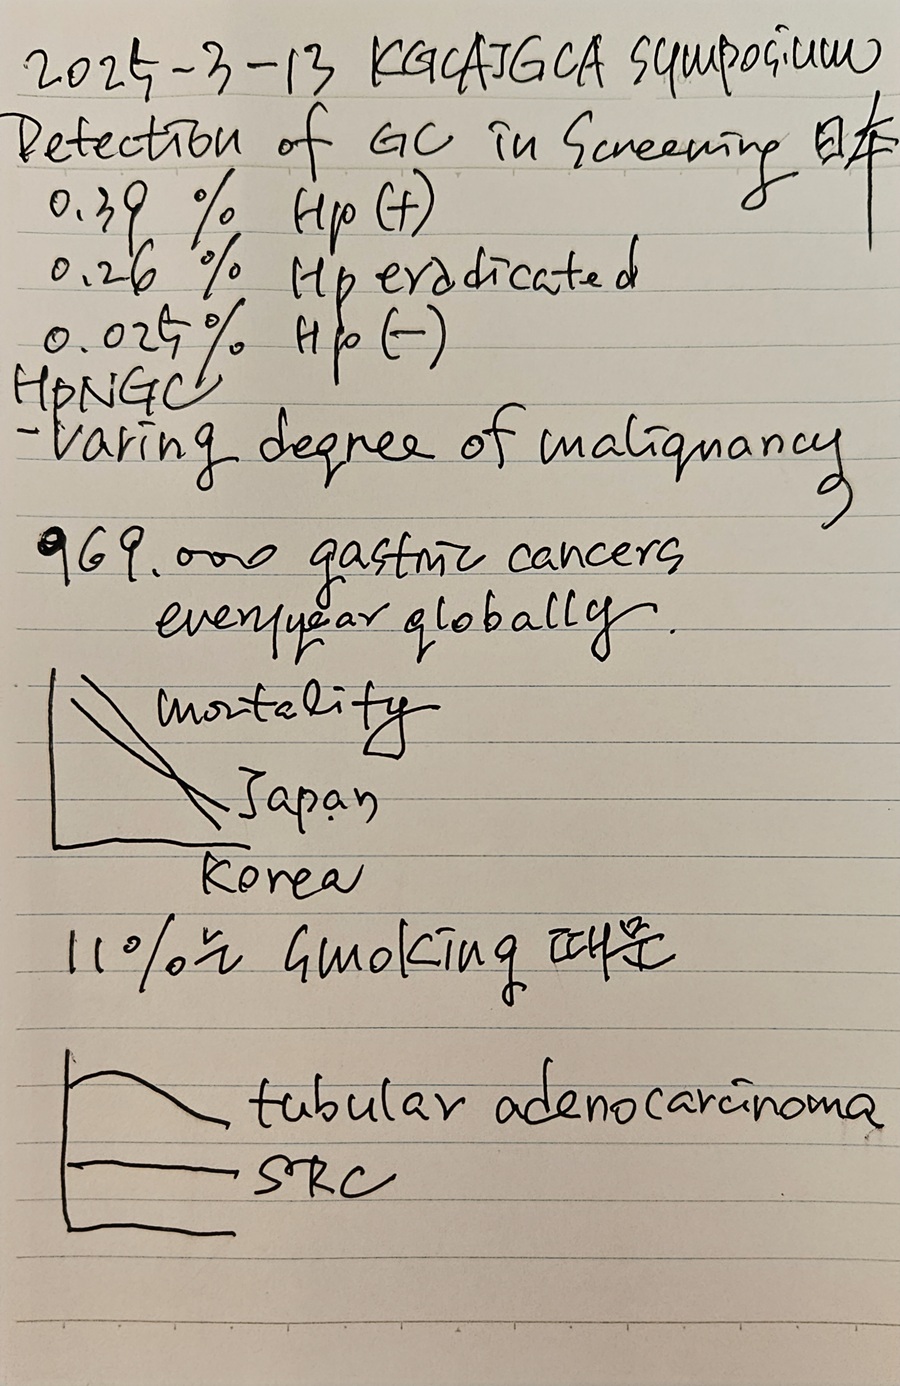 2025-3-13 KGCAJGCA symposium
Detection of GC in Screening 日本
0.39 % Hp (+)
0.26 % Hp eradicated
0.025% Hp (-)
HpNGC
- Varing degree of malignancy
969.000 gastric cancers
every year globally.
mortality
Japan
Korea
11%는 Smoking 때문
tubular adenocarcinoma
SRC